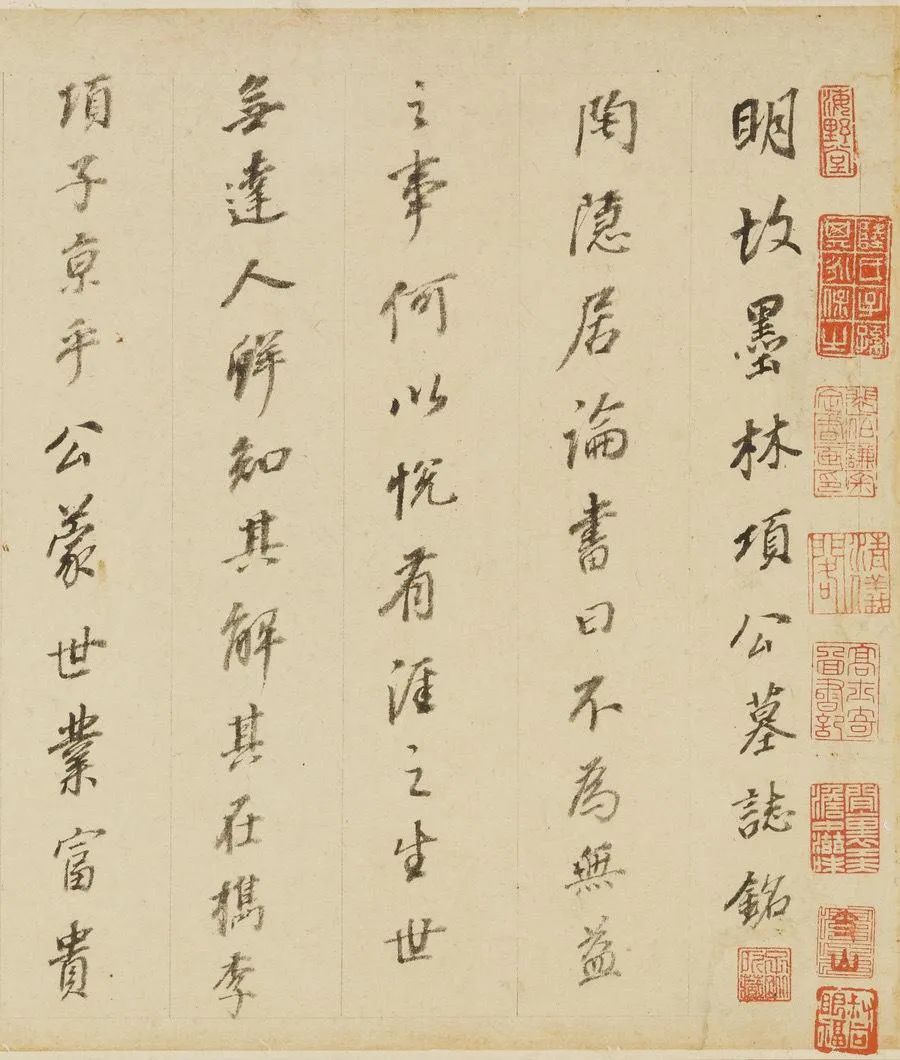 明故墨林項公墓誌銘
陶隱居論書曰不為無益
之事何以悅有涯之生世
無達人鮮知其解其在檇李
項子京乎公蒙世業富貴
海野堂